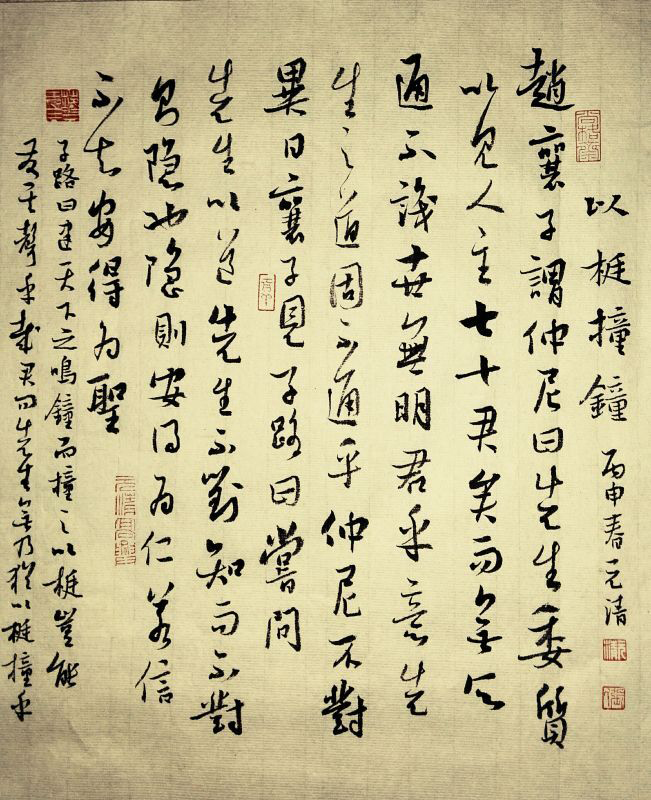 以梃撞鐘 丙申春元清
趙襄子謂仲尼曰先生委質
以見人主七十君矣而無所
通不識世無明君乎意先
生之道固不通乎仲尼不對
異日襄子見子路曰嘗問
先生以道先生不對知而不對
則隱也隱則安得為仁若信
不知安得為聖
子路曰建天下之鳴鐘而撞之以梃豈能
發其聲乎哉君問先生無乃猶以梃撞乎